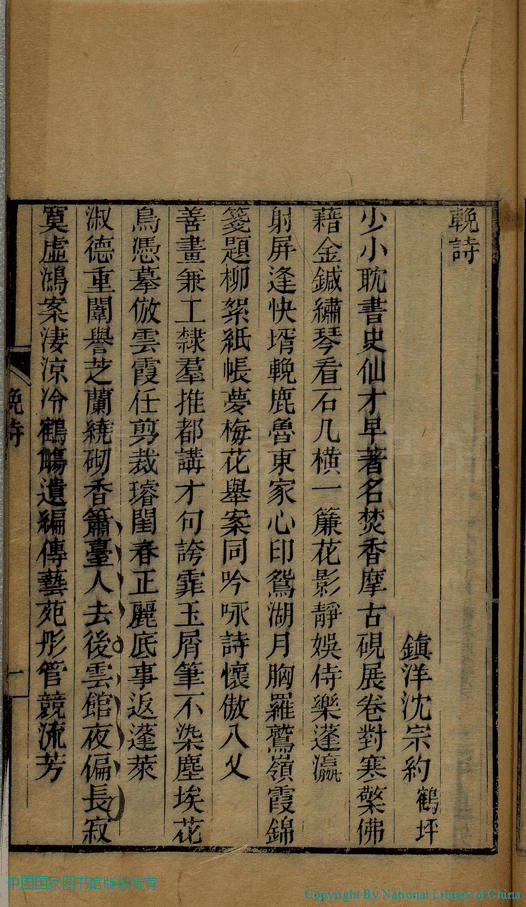 輓詩
鎮洋沈宗約鶴坪
少小耽書史仙才早著名焚香摩古硯展卷對寒檠佛
藉金鍼繡琴看石几橫一簾花影靜娛侍樂蓬瀛
射屏逢快壻輓鹿魯東家心印鴛湖月胸羅鷲嶺霞錦
箋題柳絮紙帳夢梅花舉案同吟咏詩懷傲八乂
善畫兼工隸羣推都講才句誇霏玉屑筆不染塵埃花
鳥憑摹倣雲霞任剪裁璿閨春正麗底事返蓬萊
淑德重闈譽芝蘭繞砌香簫臺人去後雲館夜偏長寂
寞虛鴻案淒涼冷鶴觴遺編傳藝苑彤管競流芳
輓詩
一
中国国家图书馆版权所有
Copyright By National Library of China